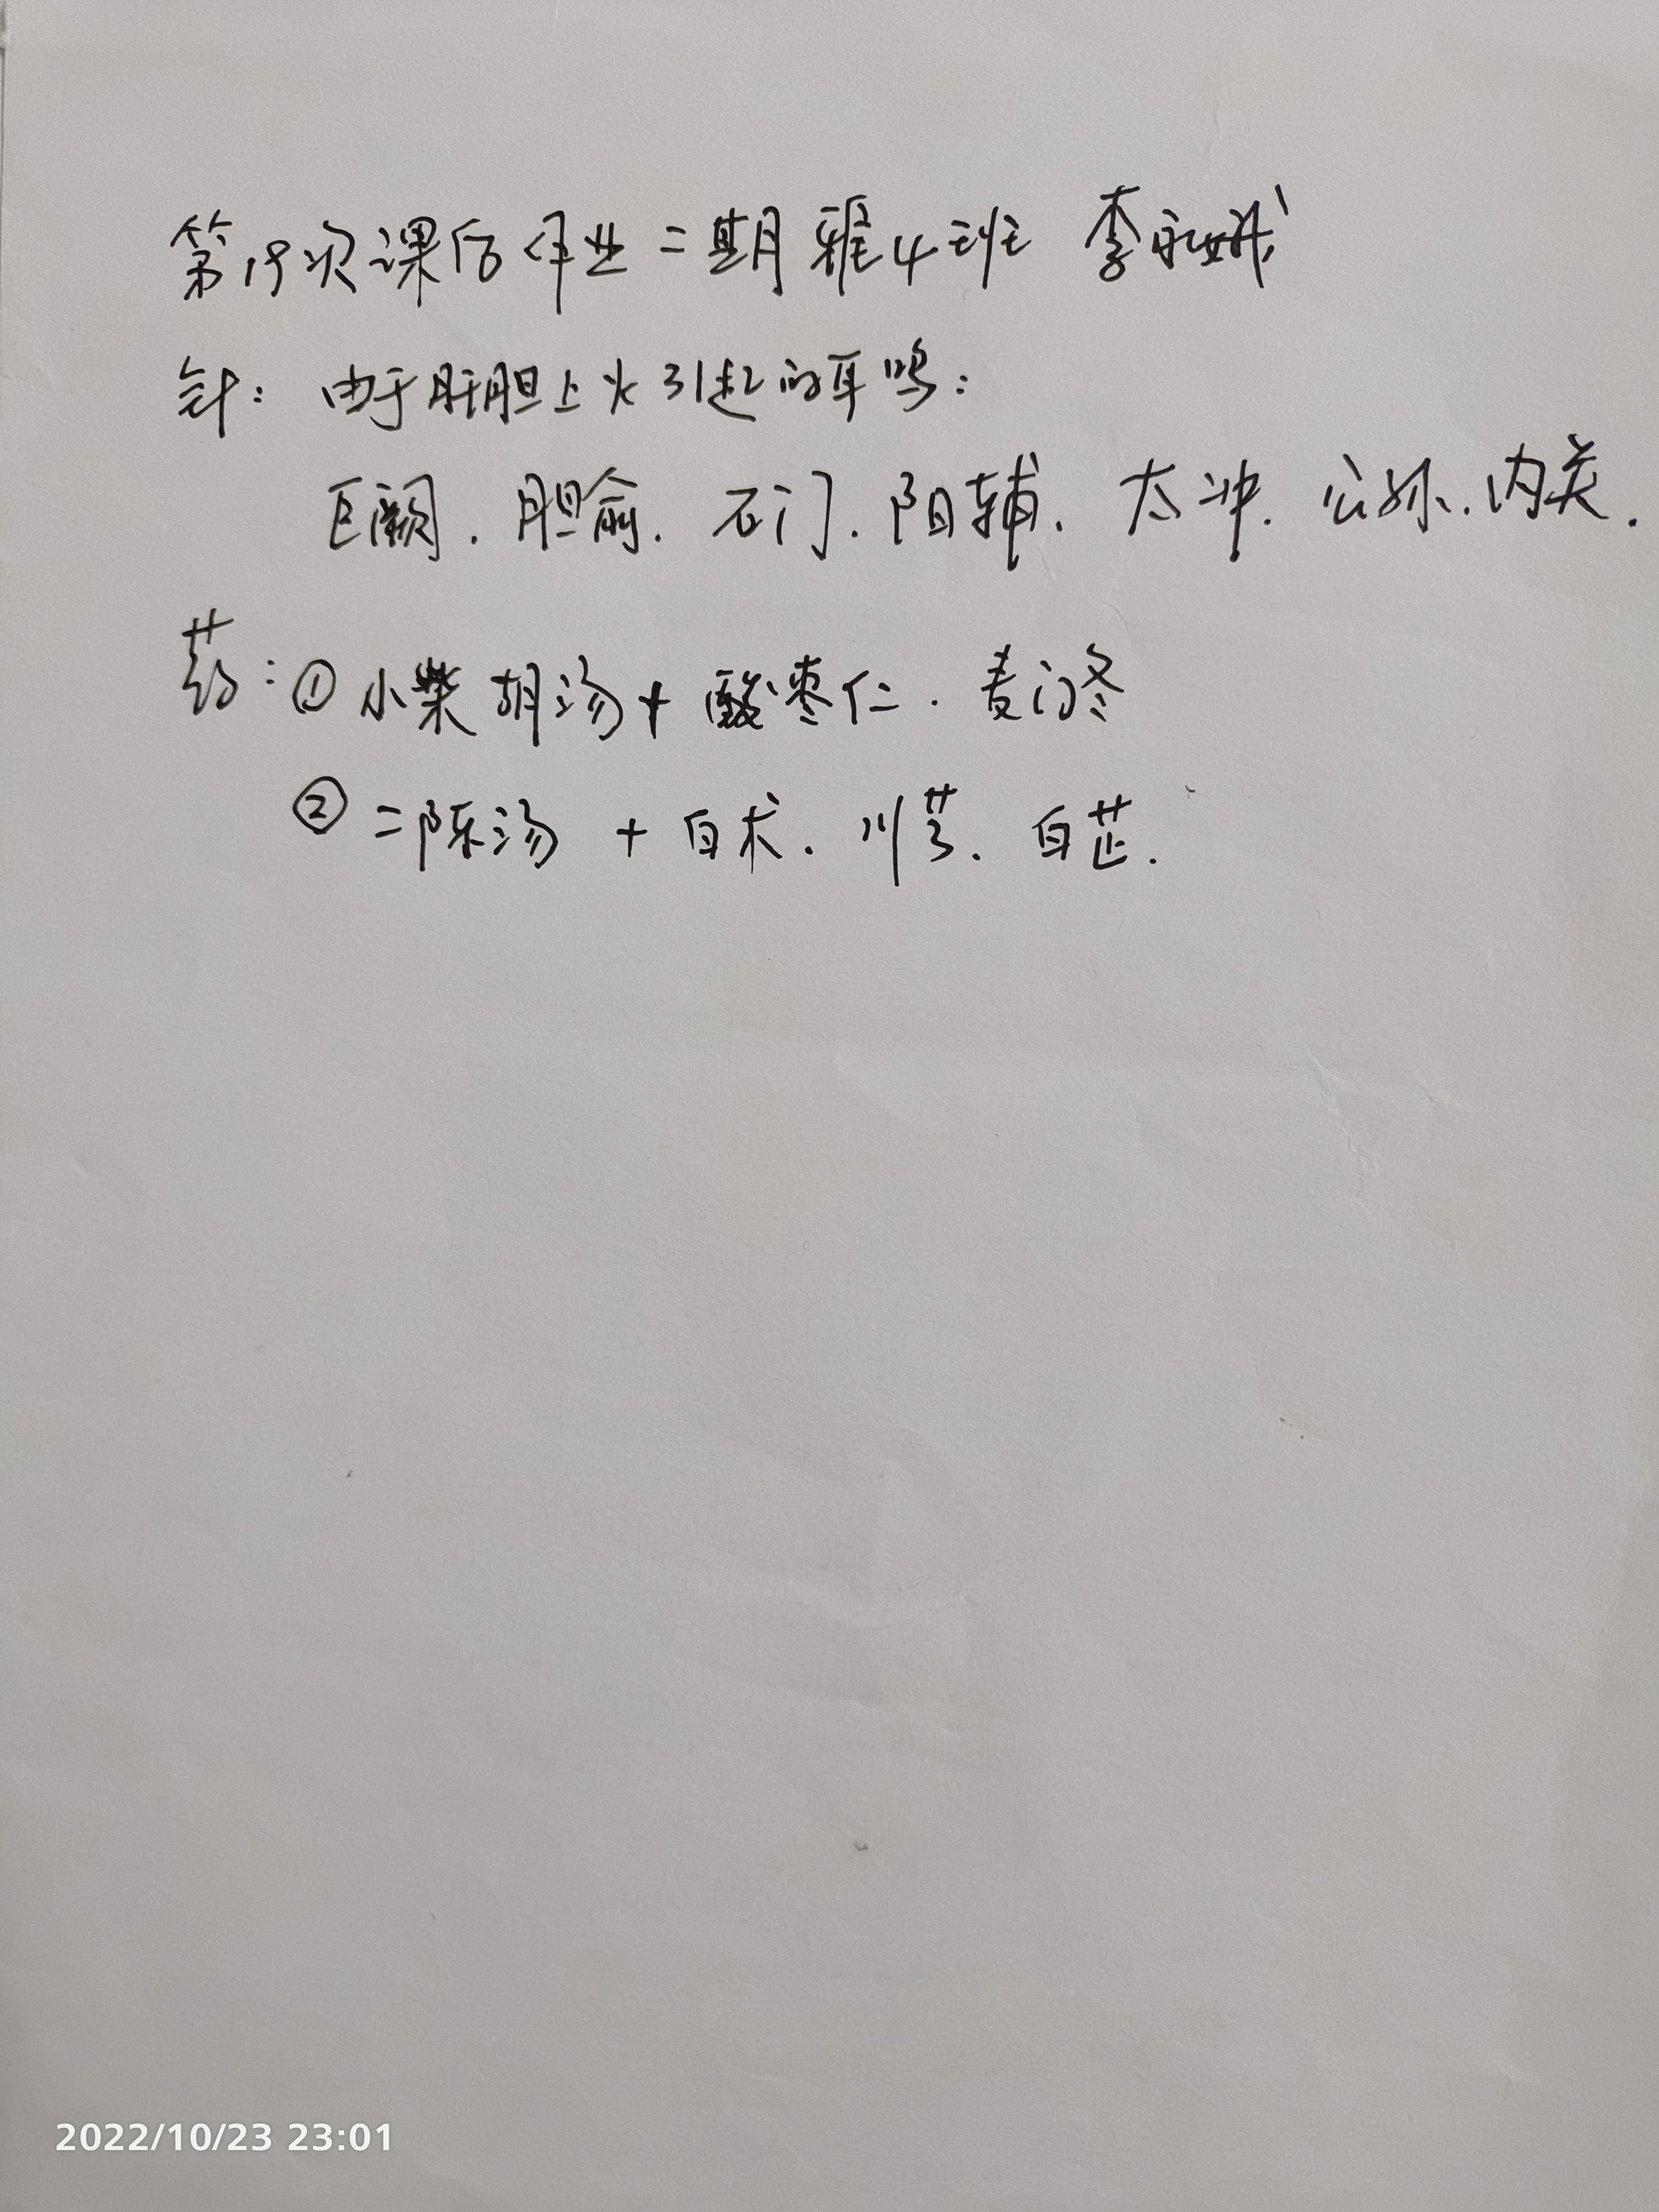 第19次课后作业二期雅4班 李永娥
针：由于肝胆上火引起的耳鸣：
巨阙．胆俞．石门．阳辅．太冲．公孙．内关．
药：①小柴胡汤+酸枣仁．麦门冬
②二陈汤+白术．川芎．白芷．
2022/10/23 23:01